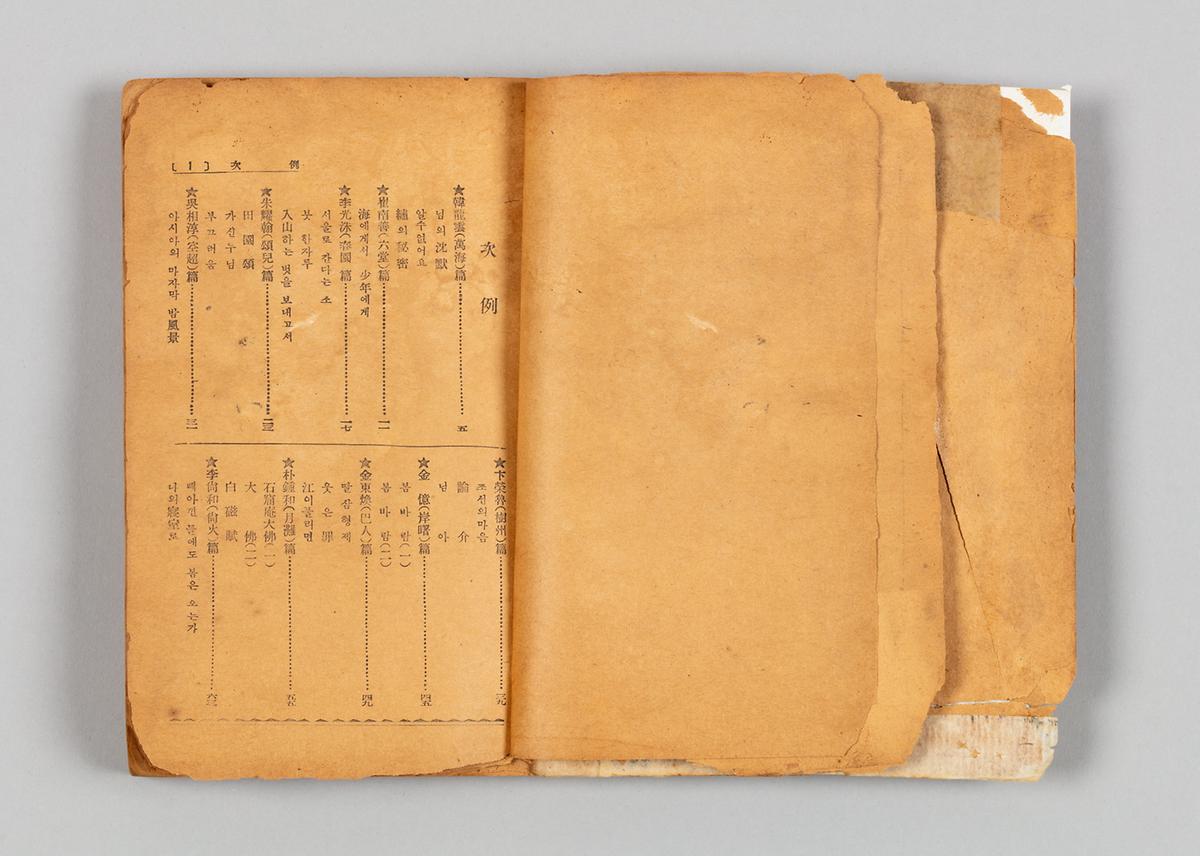 〔1〕 次 例
次 例
★韓龍雲(萬海)篇……五
님의 沈默
알수없어요
繡의 秘密
★崔南善(六堂)篇……一一
海에게서 少年에게
★李光洙(春園)篇……一七
서울로 간다는 소
붓 한자루
入山하는 벗을 보내고서
★朱耀翰(頌兒)篇……二三
田園頌
가신누님
부끄러움
★吳相淳(空超)篇……三一
아시아의 마지막 밤風景
★卞榮魯(樹州)篇……三九
조선의마음
論介
님아
★金 億(岸曙)篇……四五
봄바람(一)
봄바람(二)
★金東煥(巴人)篇……四九
딸삼형제
웃은罪
江이풀리면
★朴鍾和(月灘)篇……五五
石窟庵大佛(一)
大 佛(二)
白磁賦
★李尙和(尙火)篇……六三
빼아낀 들에도 봄은 오는가
나의寢室로